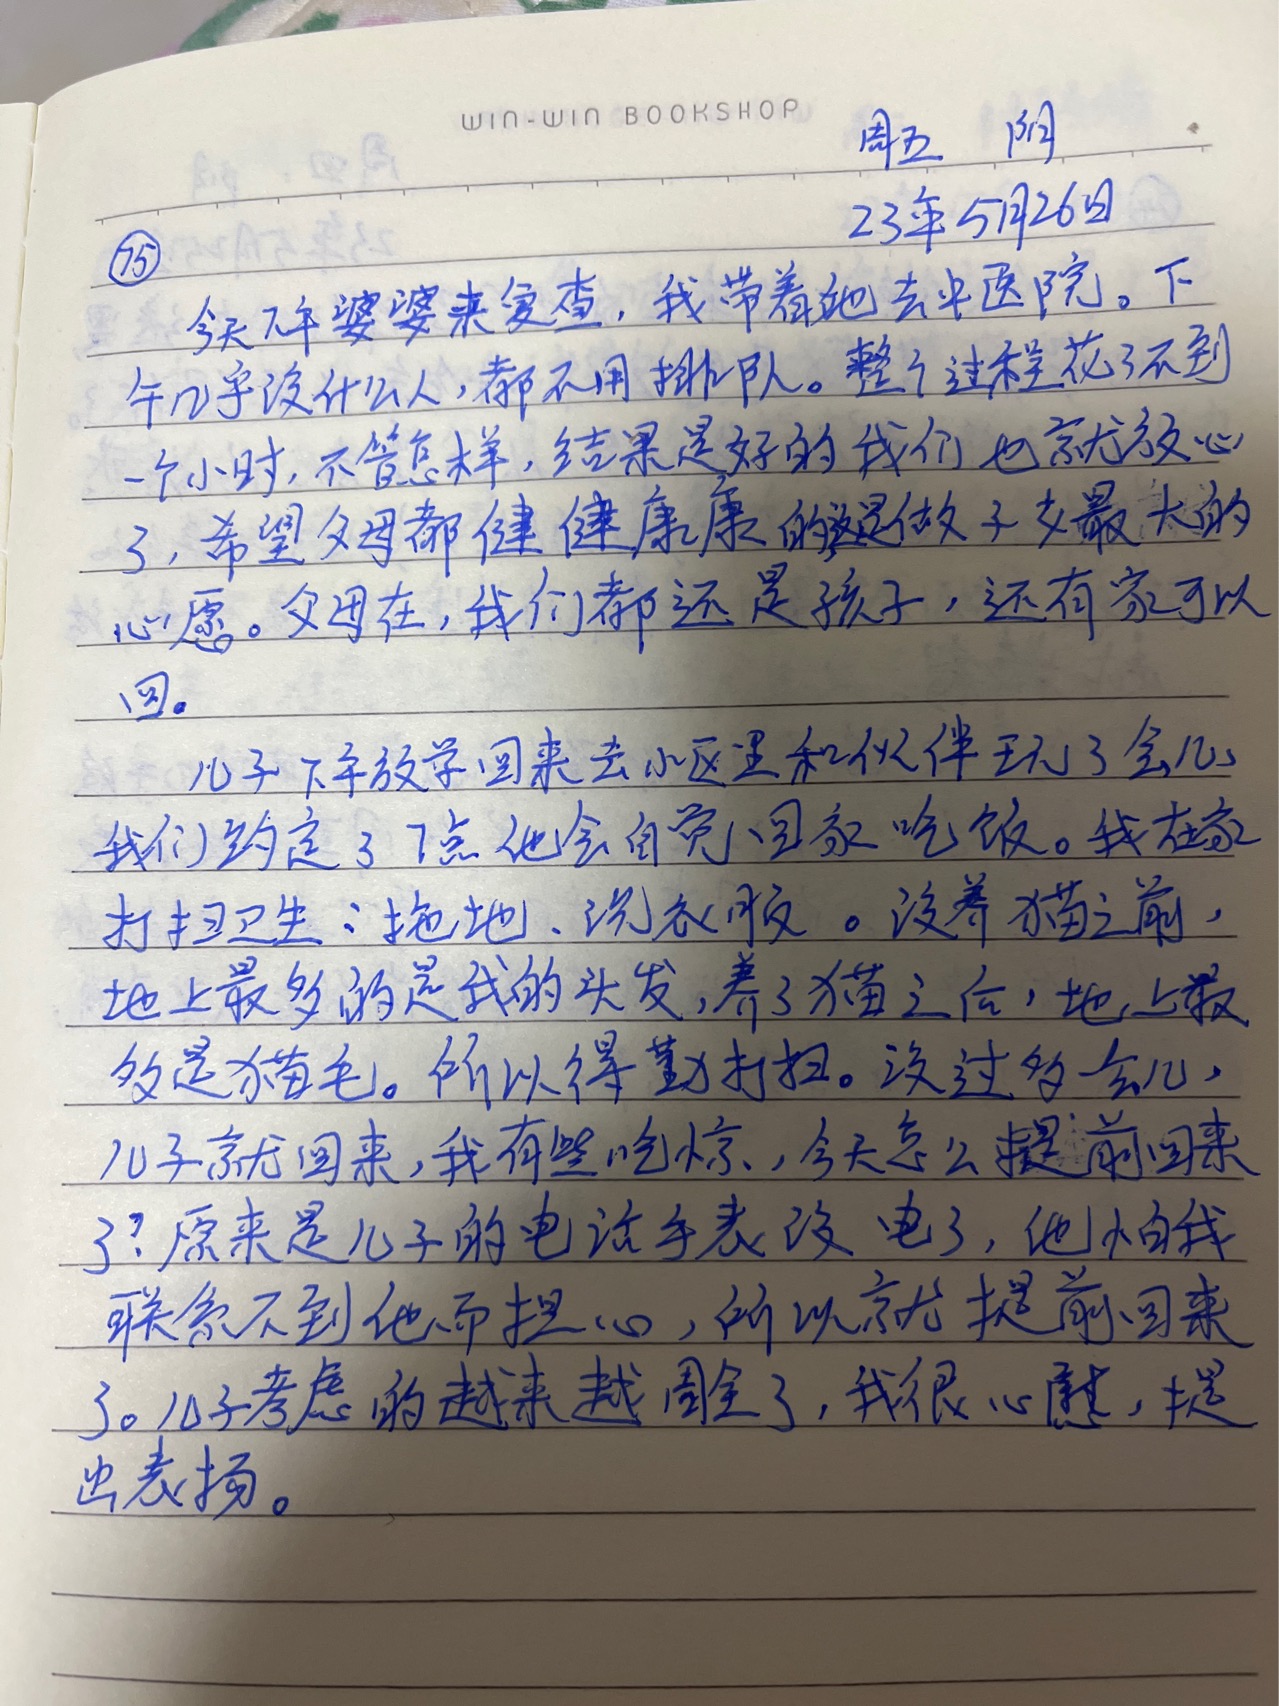 WIN-WIN BOOKSHOP
周五 阴
23年5月26日
75
今天下午婆婆来复查，我带着她去中医院。下
午几乎没什么人，都不用排队。整个过程花了不到
一个小时，不管怎样，结果是好的我们也就放心
了，希望父母都健健康康的这是做子女最大的
心愿。父母在，我们都还是孩子，还有家可以
回。
儿子下午放学回来去小区里和伙伴玩了会儿、
我们约定了7点他会自觉回家吃饭。我在家
打扫卫生：拖地、洗衣服。没养猫之前，
地上最多的是我的头发，养了猫之后，地上最
多是猫毛。所以得勤打扫。没过多会儿，
儿子就回来，我有些吃惊，今天怎么提前回来
了？原来是儿子的电话手表没电了，他怕我
联系不到他而担心，所以就提前回来
了。儿子考虑的越来越周全了，我很心慰，提
出表扬。